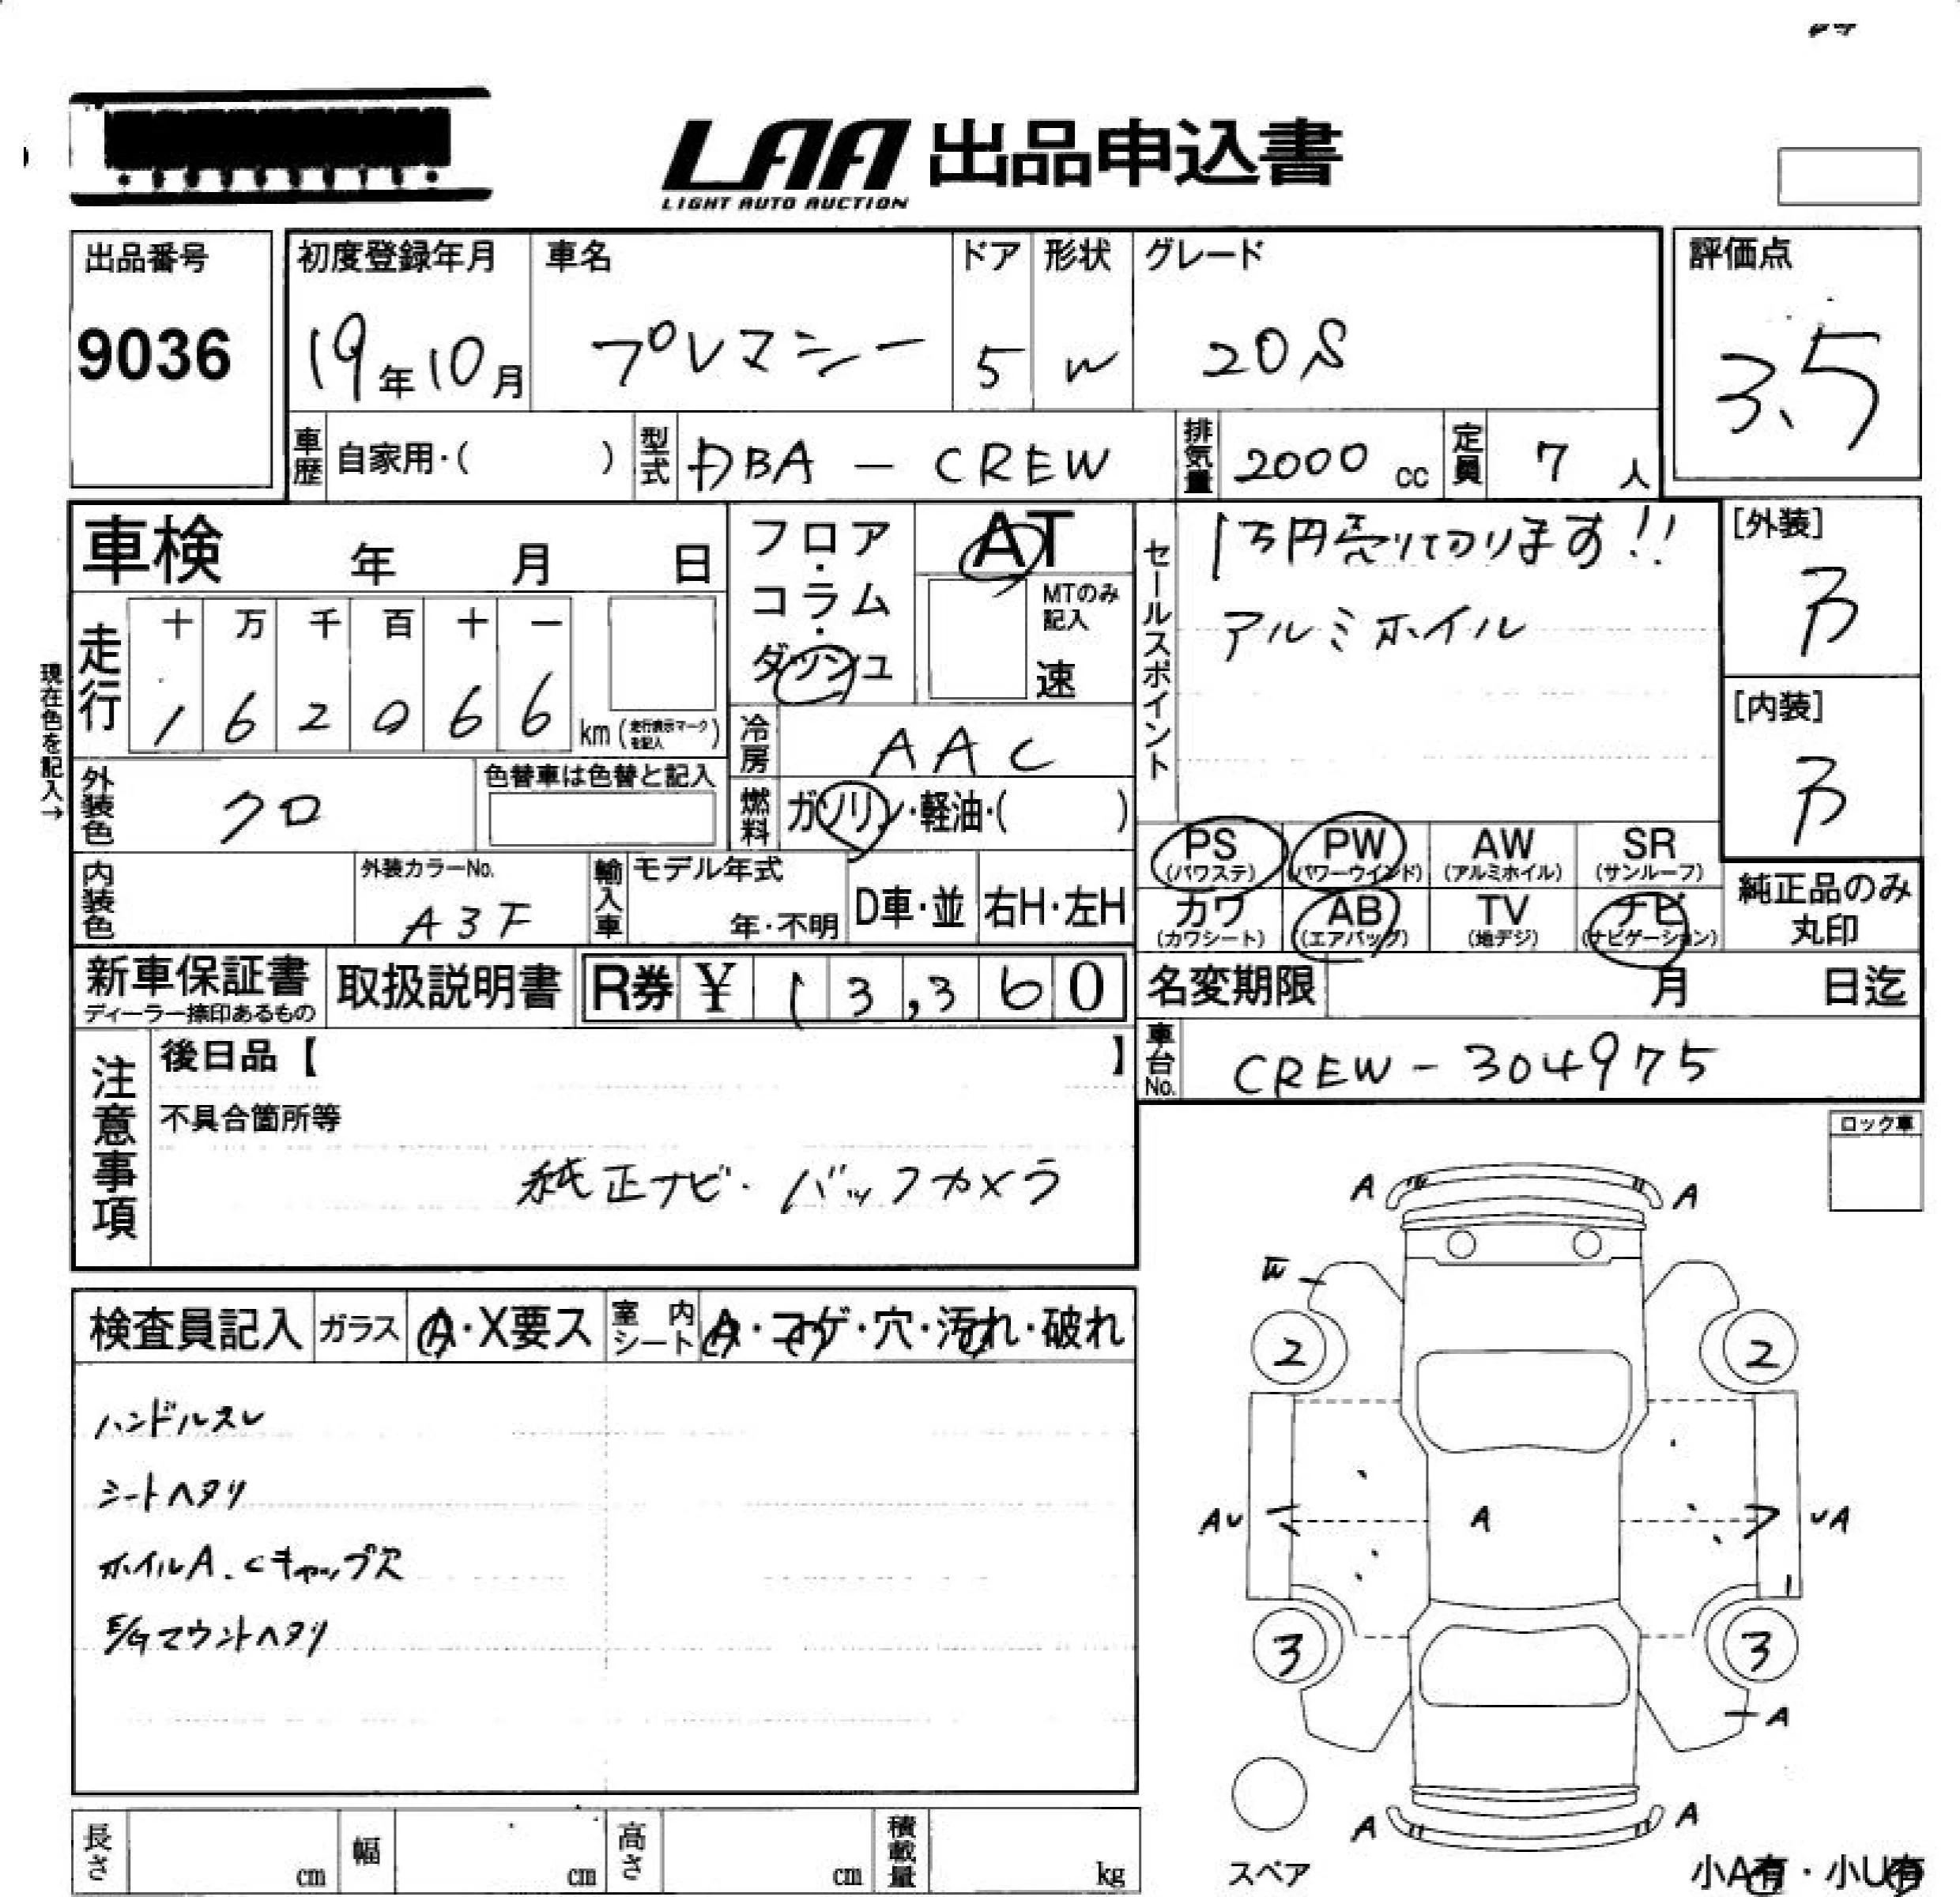 LAA 出品申込書
LIGHT AUTO AUCTION
出品番号
9036
初度登録年月
19年10月
車名
プレマシー
ドア
5
形状
W
グレード
20S
評価点
3.5
車歴 自家用・( )
型式 DBA - CREW
排気量 2000 cc
定員 7 人
車検 年 月 日
走行
十 万 千 百 十 一
1 6 2 0 6 6 km (走行表示マークを記入)
現在色を記入→
フロア・コラム・ダッシュ
AT
MTのみ記入
速
冷房 AAC
燃料 ガソリン・軽油・( )
セールスポイント
1万円売り切ります!!
アルミホイル
[外装]
B
[内装]
B
外装色 クロ
色替車は色替と記入
内装色
外装カラーNo.
A3F
輸入車 モデル年式
年・不明
D車・並
右H・左H
PS (パワステ)
PW (パワーウインド)
AW (アルミホイル)
SR (サンルーフ)
カワ (カワシート)
AB (エアバッグ)
TV (地デジ)
ナビ (ナビゲーション)
純正品のみ丸印
新車保証書
ディーラー捺印あるもの
取扱説明書
R券 ¥ 13,360
名変期限 月 日迄
車台No. CREW - 304975
注意事項
後日品【 】
不具合箇所等
純正ナビ・バックカメラ
ロック車
検査員記入
ガラス A・X要ス
室内シート A・コゲ・穴・汚れ・破れ
ハンドルスレ
シートヘタリ
ホイルA.Cキャップ欠
E/Gマウントヘタリ
A A
W
2 2
AU A UA
3 3
A
A A
スペア
小A有・小U有
長さ cm
幅 cm
高さ cm
積載量 kg